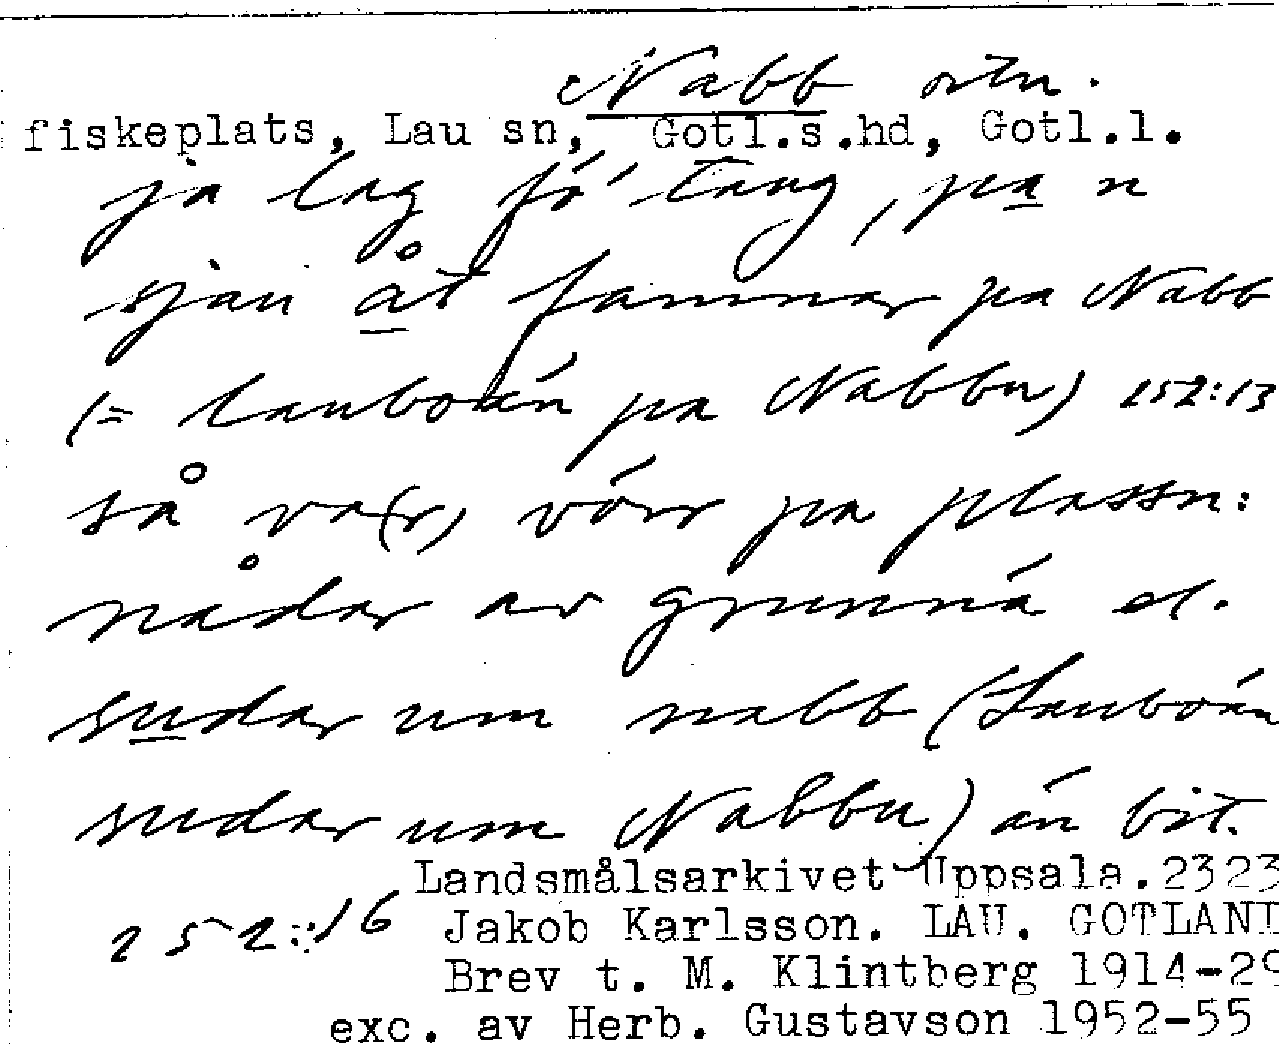 Nabb ortn.
fiskeplats, Lau sn, Gotl.s.hd, Gotl.l.
ja lag fö' taug, pa n
sjau åt famnar pa Nabb
(= lauboán pa Nabbu) 252:13
så va(r) vórr pa plassn:
nådar av grunná el.
sudar um nabb (Lauboán
sudar um Nabbu) án bit.
Landsmålsarkivet Uppsala.2323
252:16 Jakob Karlsson. LAU. GOTLAND
Brev t. M. Klintberg 1914-29
exc. av Herb. Gustavson 1952-55